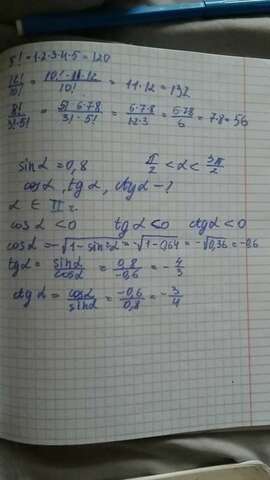 5! = 1·2·3·4·5 = 120
12!/10! = 10!·11·12/10! = 11·12 = 132
8!/3!·5! = 5!·6·7·8/3!·5! = 6·7·8/1·2·3 = 6·7·8/6 = 7·8 = 56
sin α = 0,8 π/2 < α < 3π/2
cos α, tg α, ctg α - ?
α ∈ II г.
cos α < 0 tg α < 0 ctg α < 0
cos α = -√1-sin²α = -√1-0,64 = -√0,36 = -0,6
tg α = sin α/cos α = 0,8/-0,6 = -4/3
ctg α = cos α/sin α = -0,6/0,8 = -3/4